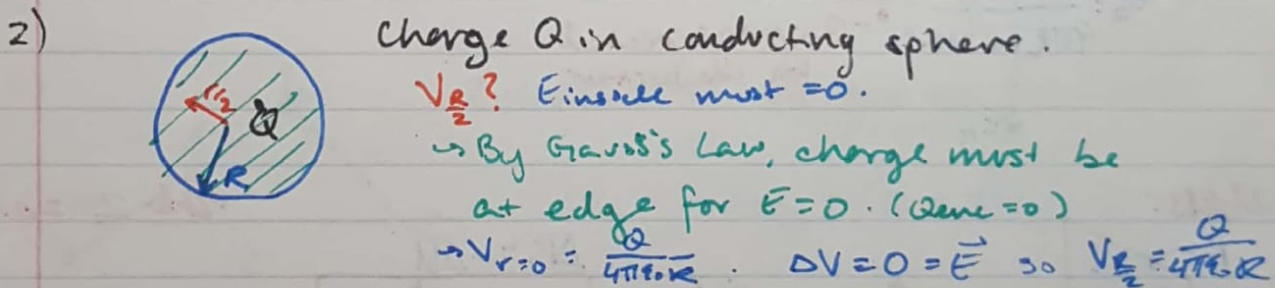 2)
Charge Q in conducting sphere.
r/2 Q
R
V_{R/2}? Einside must =0.
→ By Gauss's Law, charge must be
at edge for E=0. (Qenc=0)
→ V_{r=0} = Q/4πε₀R . ΔV=0=E⃗ so V_{R/2} = Q/4πε₀R